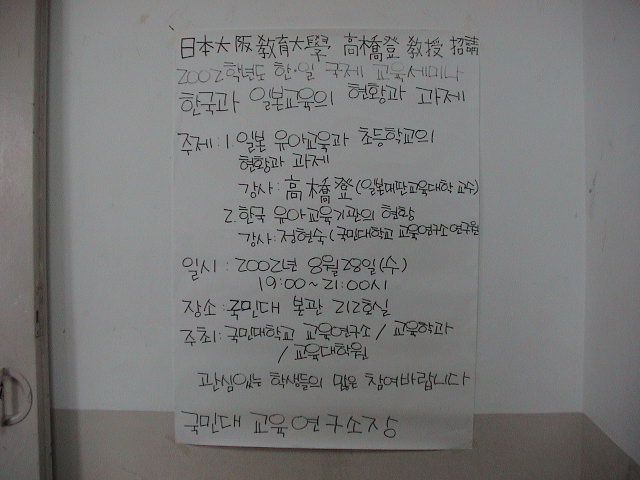 日本大阪敎育大學 高橋登 敎授 招請
2002학년도 한·일 국제 교육세미나
한국과 일본교육의 현황과 과제
주제 : 1. 일본 유아교육과 초등학교의
현황과 과제
강사 : 高橋登 (일본대판교육대학 교수)
2. 한국 유아교육기관의 현황
강사 : 정현숙 (국민대학교 교육연구소 연구원
일시 : 2002년 8월 28일 (수)
19:00 ~ 21:00시
장소 : 국민대 본관 212호실
주최 : 국민대학교 교육연구소 / 교육학과
/ 교육대학원
관심있는 학생들의 많은 참여바랍니다
국민대 교육연구소장